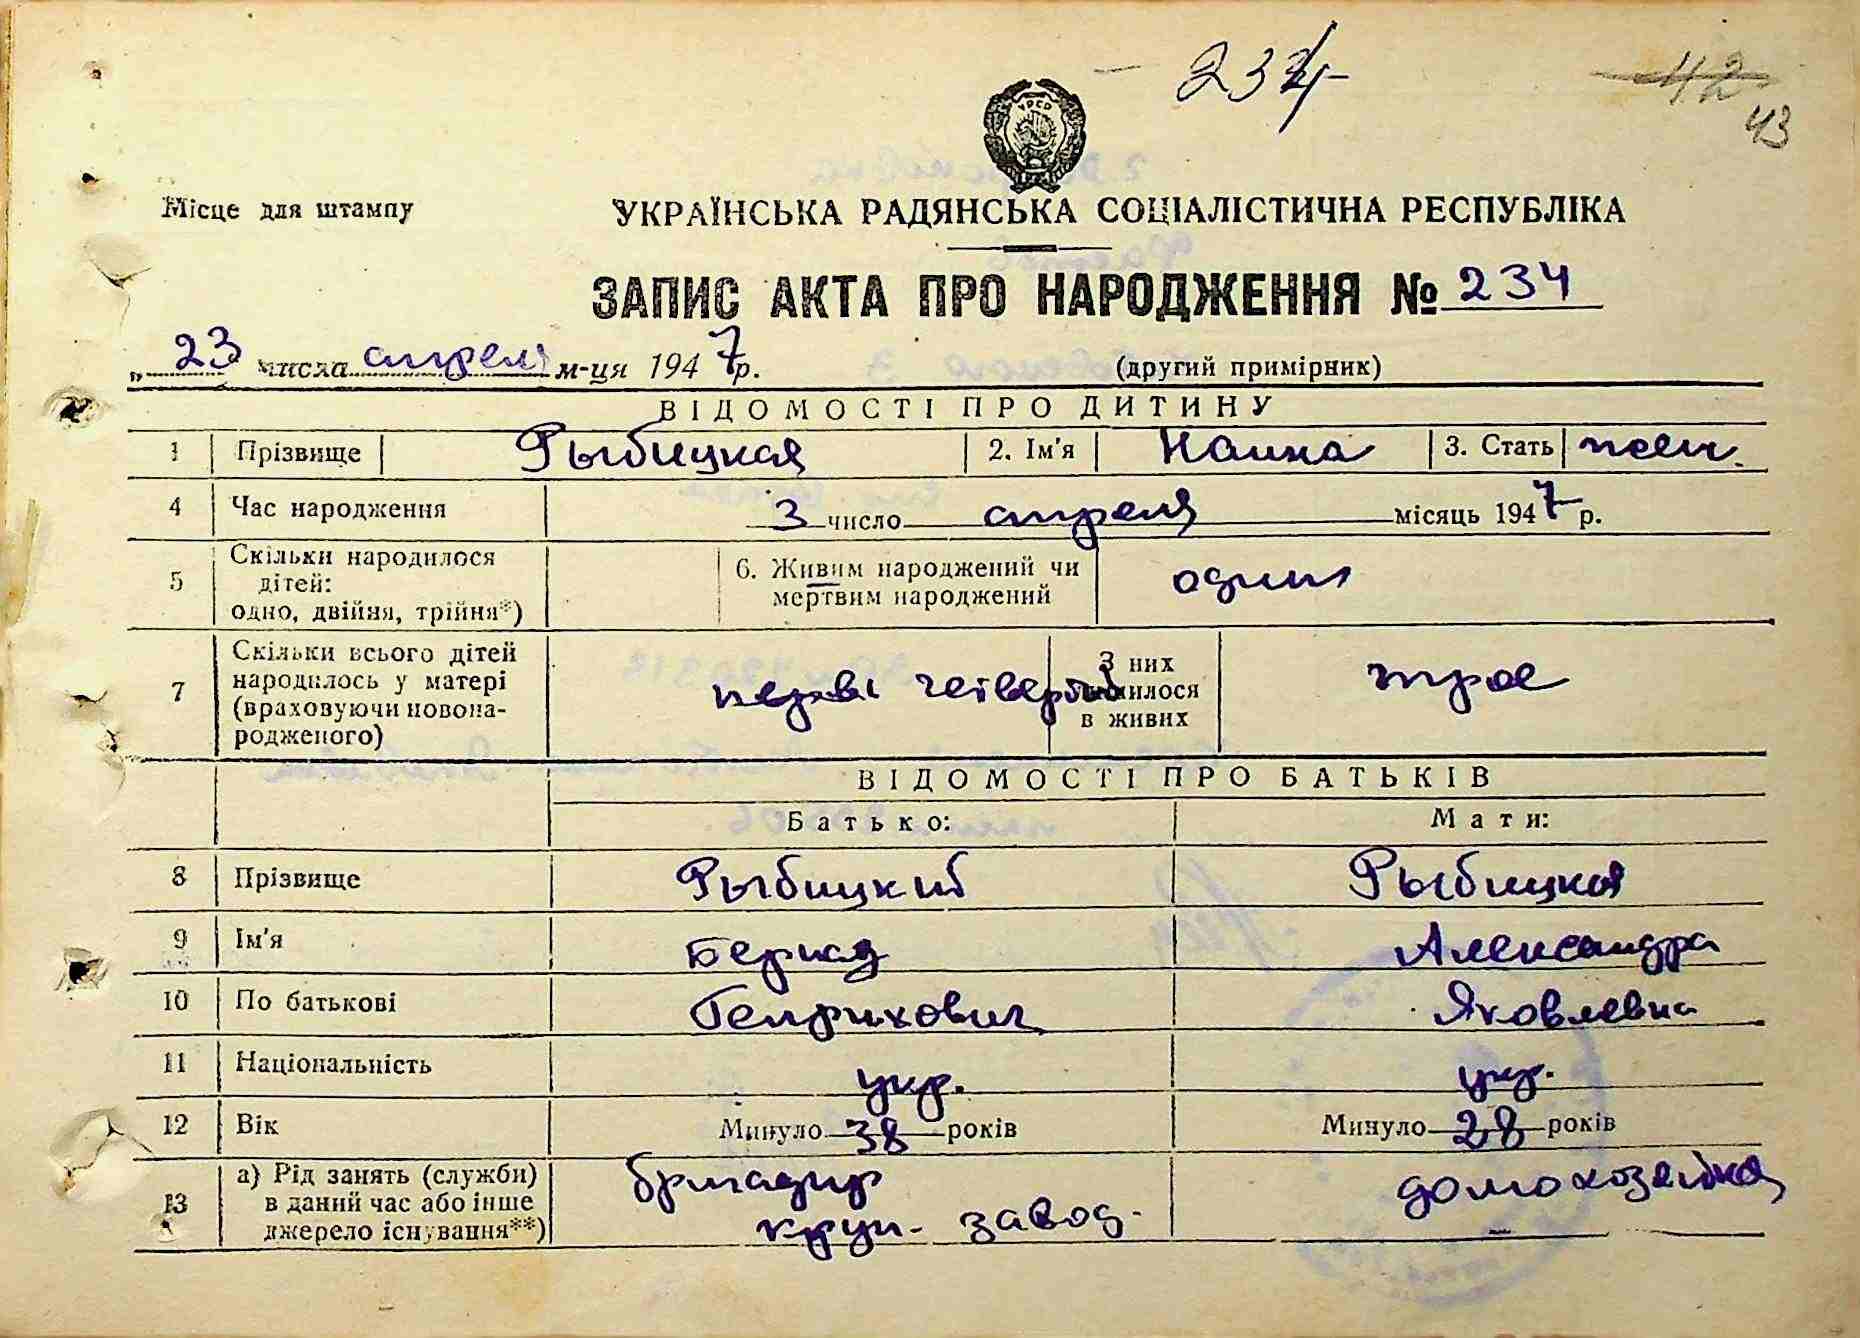 234
42
43
УРСР
Місце для штампу
УКРАЇНСЬКА РАДЯНСЬКА СОЦІАЛІСТИЧНА РЕСПУБЛІКА
ЗАПИС АКТА ПРО НАРОДЖЕННЯ № 234
„ 23 числа апреля м-ця 1947 р. (другий примірник)
ВІДОМОСТІ ПРО ДИТИНУ
1 Прізвище Рыбицкая 2. Ім'я Нанна 3. Стать жен.
4 Час народження 3 число апреля місяць 1947 р.
5 Скільки народилося дітей: одно, двійня, трійня*) 6. Живим народжений чи мертвим народжений один
7 Скільки всього дітей народилось у матері (враховуючи новонародженого) четвертый З них лишилося в живих трое
ВІДОМОСТІ ПРО БАТЬКІВ
Батько: Мати:
8 Прізвище Рыбицкий Рыбицкая
9 Ім'я Бернад Александра
10 По батькові Генрихович Яковлевна
11 Національність укр. укр.
12 Вік Минуло 38 років Минуло 28 років
13 а) Рід занять (служби) в даний час або інше джерело існування**) бригадир круп. завод. домохозяйка